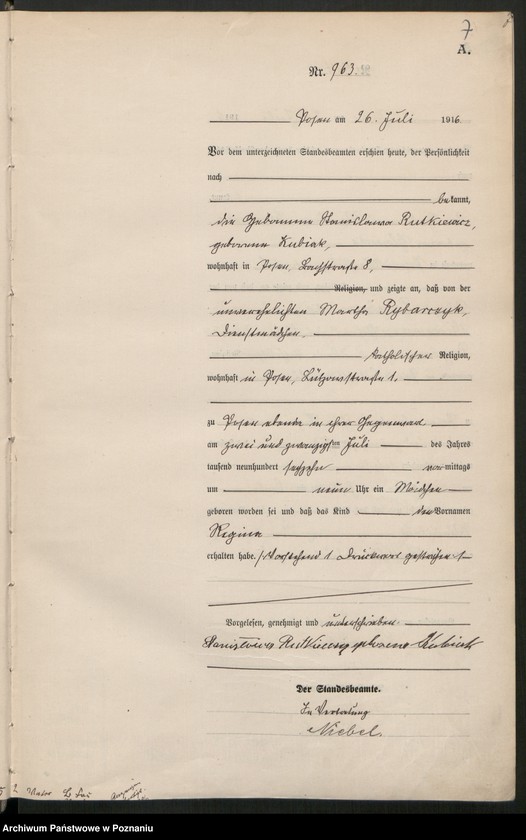 7
A.
Nr. 963.
Posen am 26. Juli 1916
Vor dem unterzeichneten Standesbeamten erschien heute, der Persönlichkeit
nach
bekannt,
die Hebamme Stanislawa Rutkiewicz,
geborene Kubiak,
wohnhaft in Posen, Bachstraße 8,
Religion, und zeigte an, daß von der
unverehelichten Martha Rybarczyk,
Dienstmädchen,
katholischer Religion,
wohnhaft in Posen, Lützowstraße 1,
zu Posen ebenda in ihrer Gegenwart
am zwei und zwanzigsten Juli des Jahres
tausend neunhundert sechzehn vormittags
um neun Uhr ein Mädchen
geboren worden sei und daß das Kind den Vornamen
Regina
erhalten habe. Vorstehend 1 Druckwort gestrichen
Vorgelesen, genehmigt und unterschrieben
Stanisława Rutkiewicz geborene Kubiak
Der Standesbeamte.
In Vertretung
Niebel.
Archiwum Państwowe w Poznaniu